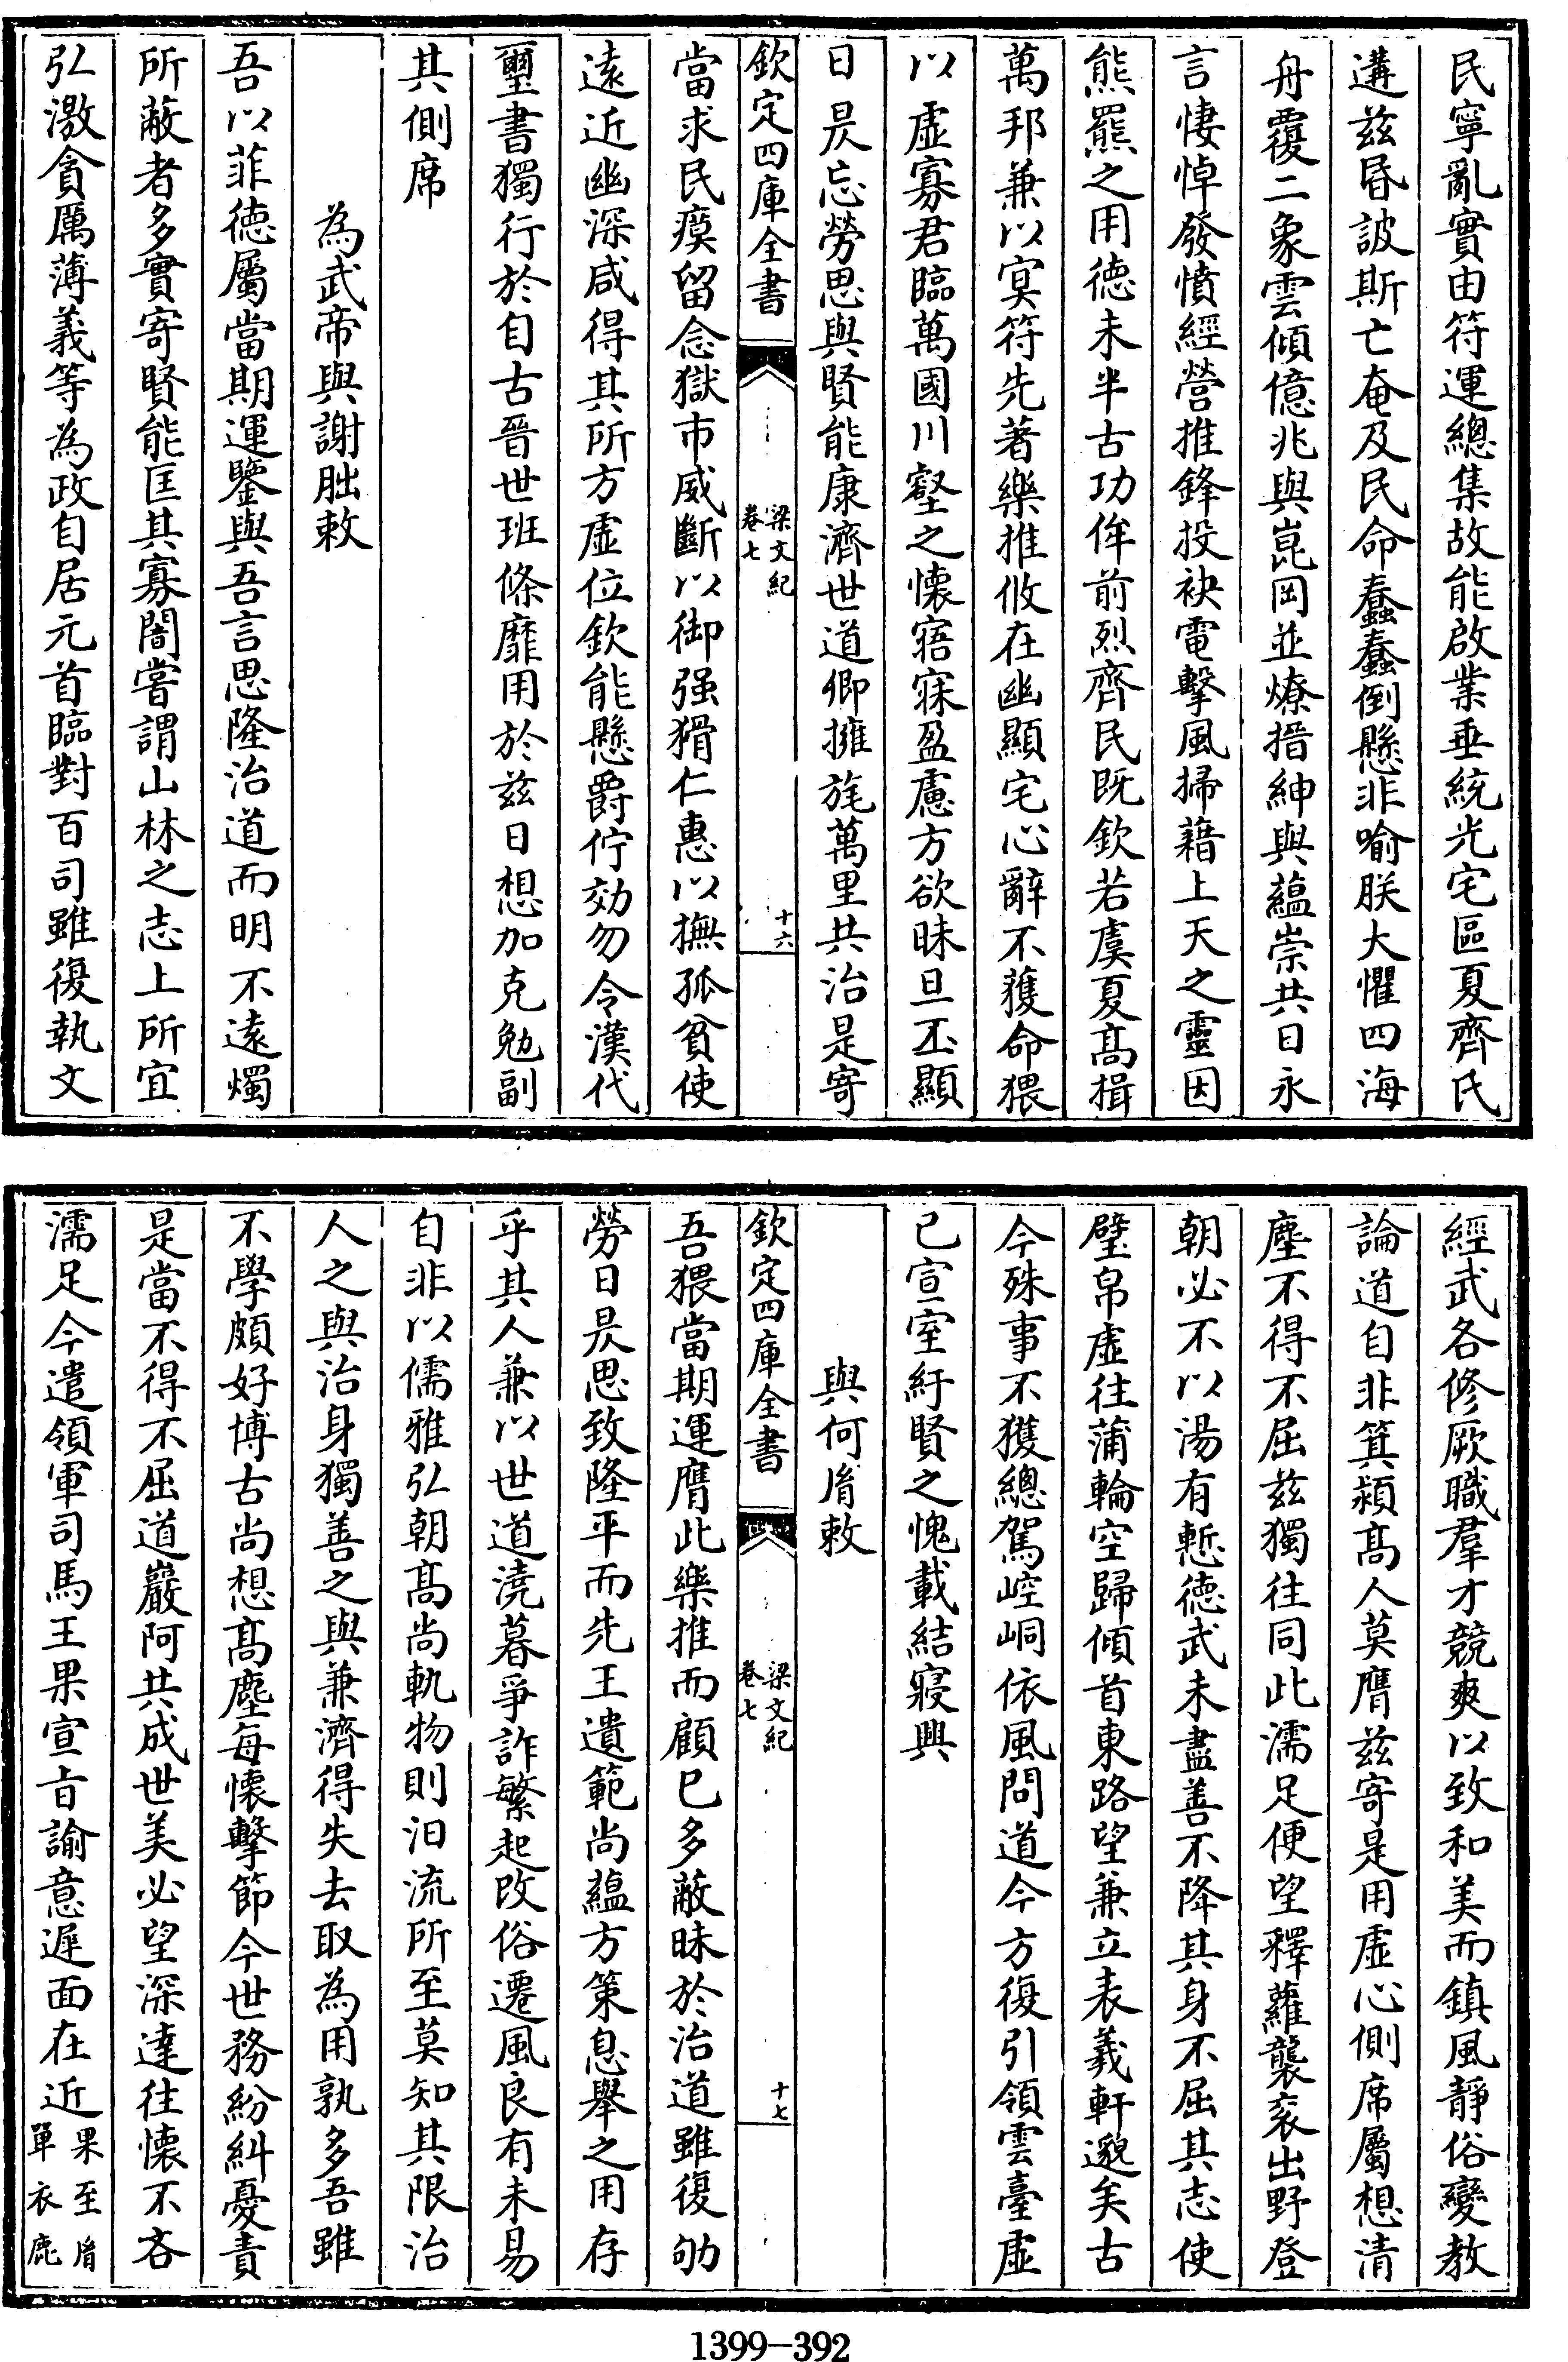 民寧亂實由符運總集故能啟業垂統光宅區夏齊氏
遘兹昬詖斯亡奄及民命蠢蠢倒懸非喻朕大懼四海
舟覆二象雲傾億兆與崑岡並燎搢紳與蘊崇共日永
言悽悼發憤經營推鋒投袂電擊風掃藉上天之靈因
熊羆之用德未半古功侔前烈齊民既欽若虞夏髙揖
萬邦兼以㝠符先著樂推攸在幽顯宅心辭不獲命猥
以虛寡君臨萬國川壑之懷寤寐盈慮方欲昧旦丕顯
日昃忘勞思與賢能康濟世道卿擁旄萬里共治是寄
欽定四庫全書
梁文紀
卷七
十六
當求民瘼留念獄市威斷以御强猾仁惠以撫孤貧使
逺近幽深咸得其所方虛位欽能懸爵佇効勿令漢代
璽書獨行於自古晉世班條靡用於兹日想加克勉副
其側席
為武帝與謝朏敕
吾以菲德屬當期運鑒與吾言思隆治道而明不逺燭
所蔽者多實寄賢能匡其寡闇嘗謂山林之志上所宜
弘激貪厲薄義等為政自居元首臨對百司雖復執文
經武各修厥職羣才競爽以致和美而鎮風靜俗變教
論道自非箕潁髙人莫膺兹寄是用虛心側席屬想清
塵不得不屈兹獨往同此濡足便望釋蘿襲衮出野登
朝必不以湯有慙德武未盡善不降其身不屈其志使
璧帛虛往蒲輪空歸傾首東路望兼立表羲軒邈矣古
今殊事不獲總駕崆峒依風問道今方復引領雲臺虛
已宣室紆賢之愧載結寢興
與何㣧敕
欽定四庫全書
梁文紀
卷七
十七
吾猥當期運膺此樂推而顧已多蔽昧於治道雖復劬
勞日昃思致隆平而先王遺範尚蘊方策息舉之用存
乎其人兼以世道澆暮爭詐繁起改俗遷風良有未易
自非以儒雅弘朝髙尚軌物則汨流所至莫知其限治
人之與治身獨善之與兼濟得失去取為用孰多吾雖
不學頗好博古尚想髙塵每懷擊節今世務紛糾憂責
是當不得不屈道巖阿共成世美必望深達往懷不吝
濡足今遣領軍司馬王果宣旨諭意遲面在近果至㣧
單衣鹿
1399—392